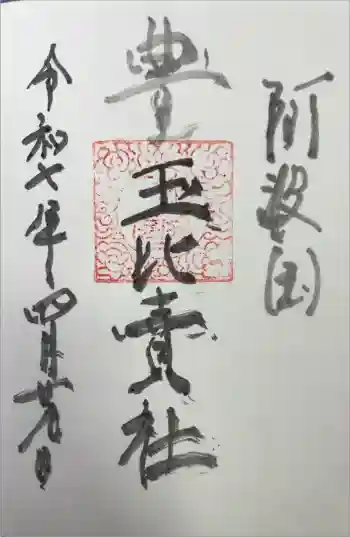 阿波国
豊玉比賣社
令和七年四月廿九日